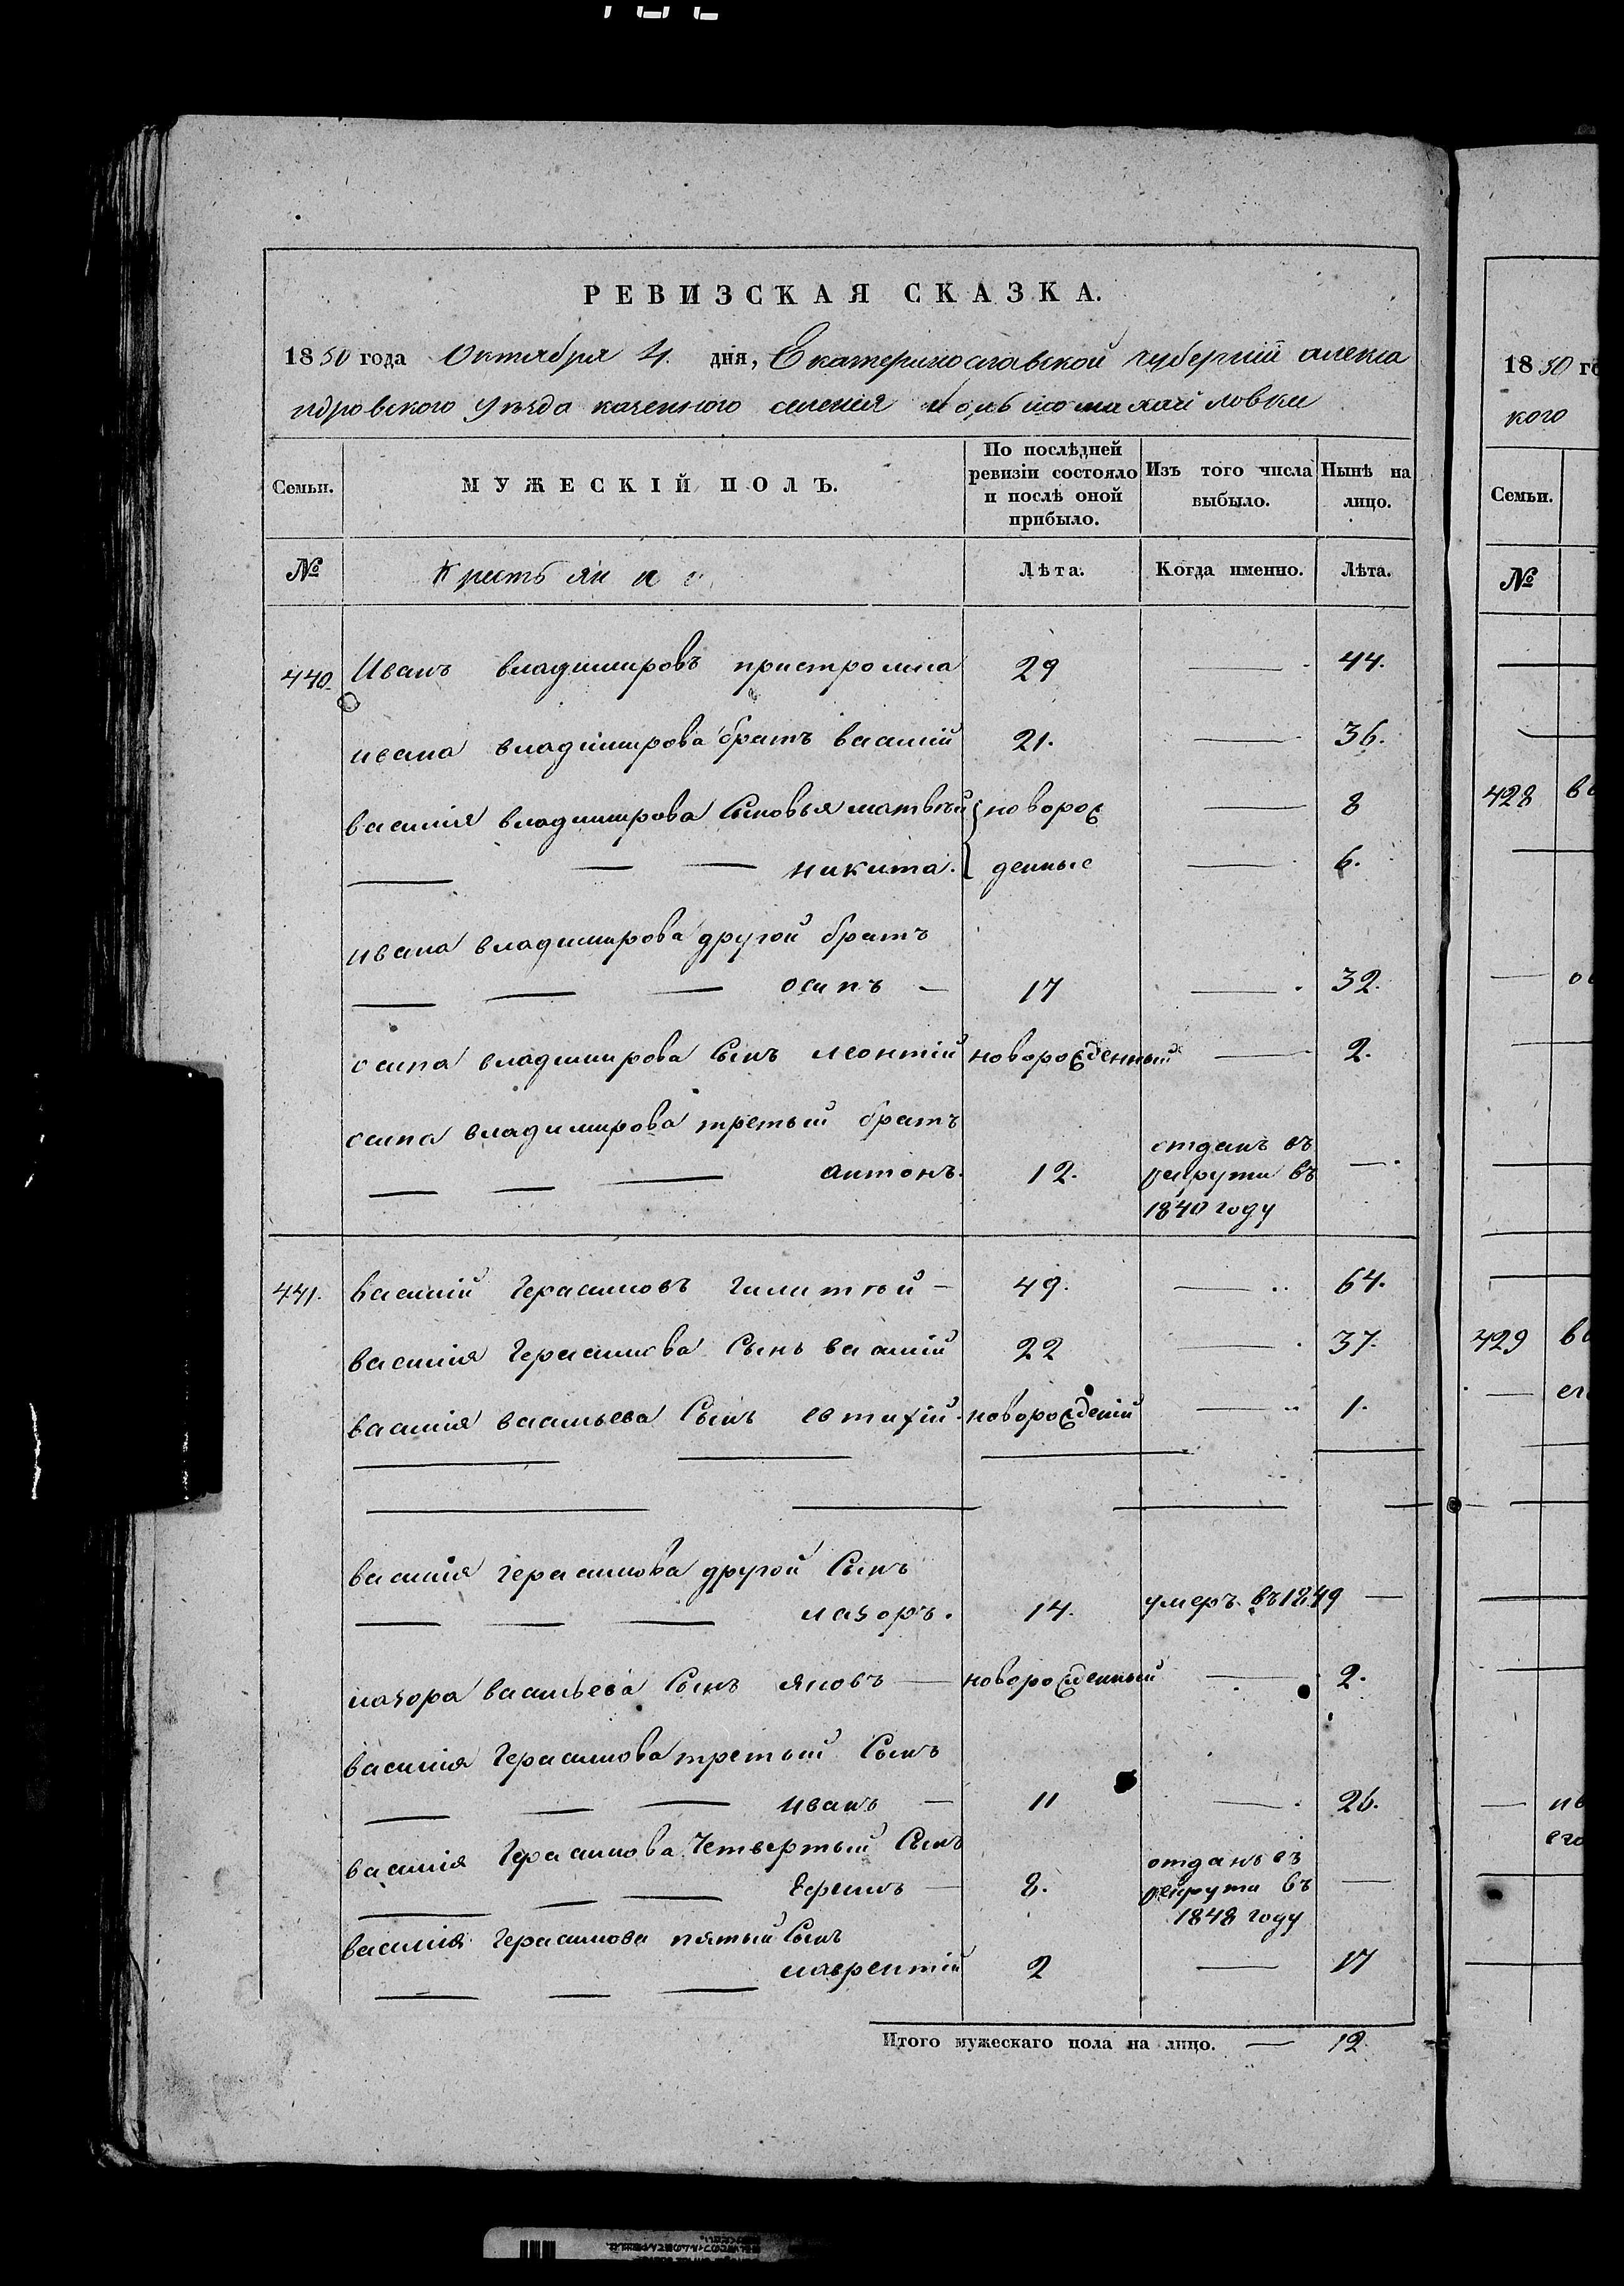 РЕВИЗСКАЯ СКАЗКА.
1850 года Октября 4. дня, Екатеринославской губернии алекса
ндровского уезда казенного селения
Семьи. МУЖЕСКІЙ ПОЛЪ. По послѣдней ревизіи состояло и послѣ оной прибыло. Изъ того числа выбыло. Нынѣ на лицо.
№ Крестьяне Лѣта. Когда именно. Лѣта.
440. Иванъ владимировъ пристромка 29 44.
ивана владимирова братъ василій 21. 36.
василія владимирова Сыновья матвѣй новорож 8
никита. денные 6.
ивана владимирова другой братъ
осипъ 17 32.
осипа владимирова Сынъ леонтій новорожденный 2.
осипа владимирова третьий братъ
антонъ. 12. отданъ въ рекруты въ 1840 году
441. василій Герасимовъ 49. 64.
василія Герасимова Сынъ василій 22 37.
василія васильева Сынъ евтихій. новорожденій 1.
василія герасимова другой Сынъ
лазоръ. 14. умеръ въ 1849
лазора васильева Сынъ яковъ новорожденный 2.
василія Герасимова третьий Сынъ
иванъ 11 26.
василія Герасимова Четвертый Сынъ
Ефимъ 8. отданъ въ рекруты въ 1848 году
василія Герасимова пятый Сынъ
лаврентій 2 17
Итого мужескаго пола на лицо. 12.
1850 го
кого
Семьи.
№
428
429